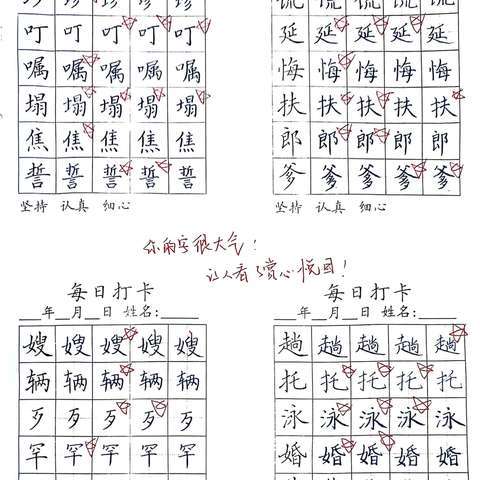 叮 叮 叮 叮 叮
嘱 嘱 嘱 嘱 嘱
塌 塌 塌 塌 塌
焦 焦 焦 焦 焦
誓 誓 誓 誓 誓
坚持 认真 细心
延 延 延 延 延
悔 悔 悔 悔 悔
扶 扶 扶 扶 扶
郎 郎 郎 郎 郎
爹 爹 爹 爹 爹
坚持 认真 细心
你的字很大气!
让人看了赏心悦目!
每日打卡
__年__月__日 姓名:____
嫂 嫂 嫂 嫂 嫂
辆 辆 辆 辆 辆
歹 歹 歹 歹 歹
罕 罕 罕 罕 罕
每日打卡
__年__月__日 姓名:____
趟 趟 趟 趟 趟
托 托 托 托 托
泳 泳 泳 泳 泳
婚 婚 婚 婚 婚